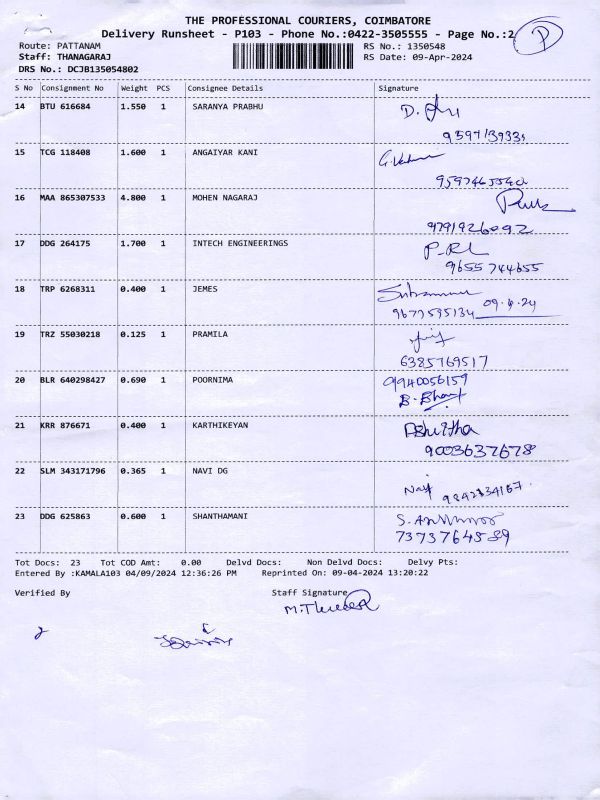 THE PROFESSIONAL COURIERS, COIMBATORE
Delivery Runsheet - P103 - Phone No.:0422-3505555 - Page No.:2
P
Route: PATTANAM RS No.: 1350548
Staff: THANAGARAJ RS Date: 09-Apr-2024
DRS No.: DCJB135054802
S No Consignment No Weight PCS Consignee Details Signature
14 BTU 616684 1.550 1 SARANYA PRABHU
15 TCG 118408 1.600 1 ANGAIYAR KANI
16 MAA 865307533 4.800 1 MOHEN NAGARAJ
9791926092
17 DDG 264175 1.700 1 INTECH ENGINEERINGS
9655 744655
18 TRP 6268311 0.400 1 JEMES
09.4.24
19 TRZ 55030218 0.125 1 PRAMILA
6385769517
20 BLR 640298427 0.690 1 POORNIMA
9940056159
21 KRR 876671 0.400 1 KARTHIKEYAN
9003637678
22 SLM 343171796 0.365 1 NAVI DG
23 DDG 625863 0.600 1 SHANTHAMANI
Tot Docs: 23 Tot COD Amt: 0.00 Delvd Docs: Non Delvd Docs: Delvy Pts:
Entered By :KAMALA103 04/09/2024 12:36:26 PM Reprinted On: 09-04-2024 13:20:22
Verified By Staff Signature